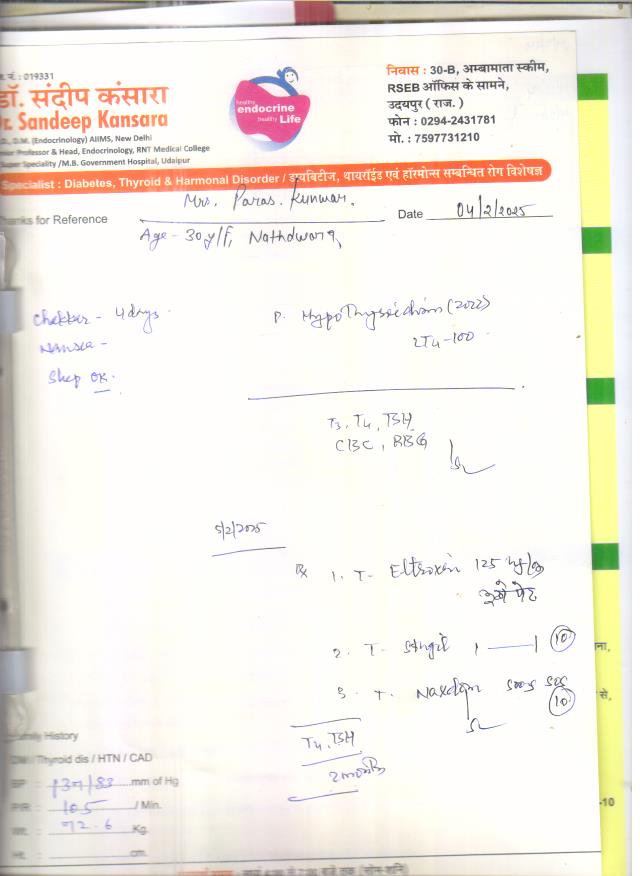 नं. : 019331
डॉ. संदीप कंसारा
Dr. Sandeep Kansara
D.M. (Endocrinology) AIIMS, New Delhi
Professor & Head, Endocrinology, RNT Medical College
Super Speciality /M.B. Government Hospital, Udaipur
healthy
endocrine
healthy Life
निवास : 30-B, अम्बामाता स्कीम,
RSEB ऑफिस के सामने,
उदयपुर ( राज. )
फोन : 0294-2431781
मो. : 7597731210
Specialist : Diabetes, Thyroid & Harmonal Disorder / डायबिटीज, थायराईड एवं हॉरमोन्स सम्बन्धित रोग विशेषज्ञ
Thanks for Reference
Mrs. Paras. Kunwar.
Date 04/2/2025
Age - 30y/F, Nathdwara
Chakkar - 4 days.
Nausea -
Sleep OK.
P. Hypothyroidism (2022)
LT4-100
T3, T4, TSH
CBC, RBG
5/2/2025
Rx
1. T- Eltroxin 125
2. T. 1 — 1 10
3. T. Naxdom SOS
10
T4, TSH
Family History
DM / Thyroid dis / HTN / CAD
BP : 137/83 mm of Hg
P/R : 105 / Min.
Wt. : 72.6 Kg.
Ht. : cm.
से,
-10